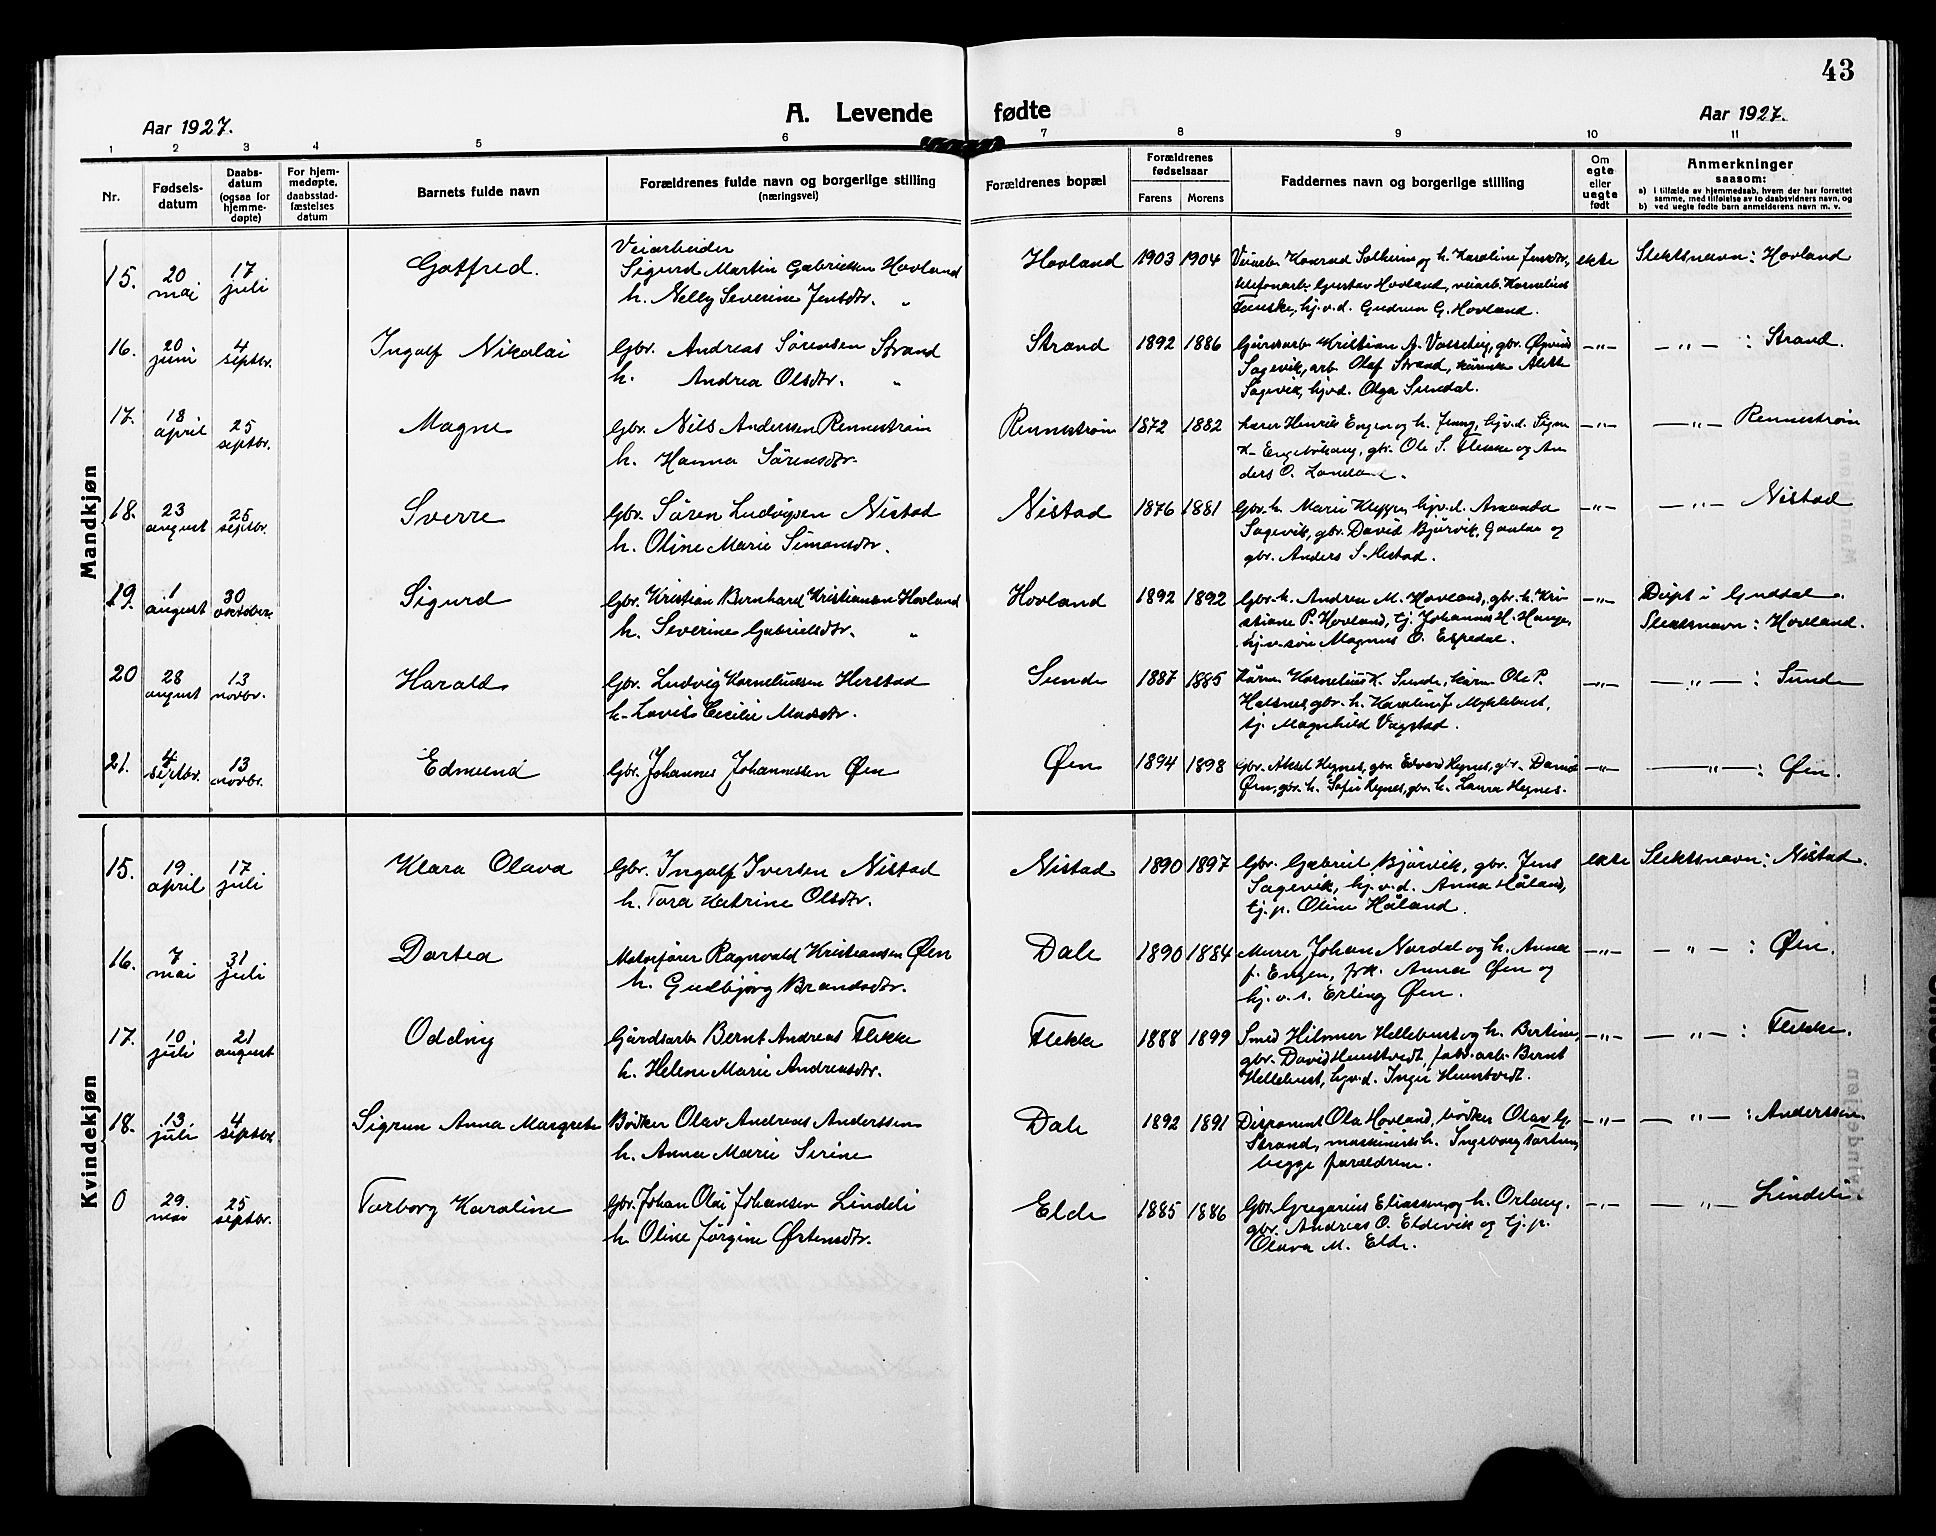 43
A. Levende fødte
Aar 1927.
Aar 1927.
1 2 3 4 5 6 7 8 9 10 11
Nr.
Fødsels-
datum
Daabs-
datum
(ogsaa for
hjemme-
døpte)
For hjem-
medøpte,
daabsstad-
fæstelses
datum
Barnets fulde navn
Forældrenes fulde navn og borgerlige stilling
(næringsvei)
Forældrenes bopæl
Forældrenes
fødselsaar
Farens Morens
Faddernes navn og borgerlige stilling
Om
egte
eller
uegte
født
Anmerkninger
saasom:
a) i tilfælde av hjemmedaab, hvem der har forrettet
samme, med tilføielse av to daabsvidners navn, og
b) ved uegte fødte barn anmelderens navn m. v.
Mandkjøn
15. 20 mai 17 juli Gotfred.
Veiarbeider
Sigurd Martin Gabrielsen Hovland
h. Nelly Severine Jensdtr. "
Hovland 1903 1904
Veiarb. Konrad Solheim og h. Karoline Jensdtr.,
telefonarb. Gustav Hovland, veiarb. Kornelius
hj.v.d. Gudrun G. Hovland.
ekte Slektsnavn: Hovland
16. 20 juni 4 septbr. Ingolf Nikolai
Gbr. Andreas Sørensen Strand
h. Andrea Olsdtr. "
Strand 1892 1886
Gårdsarb. Kristian A. Vassdig, gbr. Øyvind
Sagevik, arb. Olaf Strand,
Sagevik, hjvd. Olga Sundal.
-"- -"- : Strand.
17. 18 april 25 septbr. Magne
Gbr. Nils Andersen Rennestrøin
h. Hanna Sørensdtr.
Rennestrøin 1872 1882
Lærer Henrik Engen og h. Jenny, hjv.d. Signe
gbr. Ole S. Flekke og An
ders O. Landøen.
-"- -"- Rennestrøin
18. 23 august 25 septbr. Sverre
Gbr. Søren Ludvigsen Nistad
h. Oline Marie Simonsdtr.
Nistad 1876 1881
Gbr. h. Marie Kleppe, hjv.d. Amanda
Sagevik, gbr. David Bjørvik, Gaular og
gbr. Anders S. Nistad.
-"- -"- Nistad
19. 1 august 30 oktober Sigurd
Gbr. Kristian Bernhard Kristiansen Hovland
h. Severine Gabrielsdtr. "
Hovland 1892 1892
Gbr. h. Andrea M. Hovland, gbr. h. Kri
stiane P. Hovland, tj. Johannes H. Hauge,
hj.v.søn Magnus O. Espedal.
-"- Døpt i Guddal.
Slektsnavn: Hovland.
20 28 august 13 novbr. Harald
Gbr. Ludvig Korneliussen Herstad
h. Lovise Cecilie Madsdtr.
Sunde 1887 1885
Kårm. Kornelius K. Sunde, kårm. Ole P.
Halsnes, gbr. h. Karoline J. Myklebust,
tj. Magnhild Vågstad.
-"- -"- : Sunde
21. 4 septbr. 13 novbr. Edmund
Gbr. Johannes Johannessen Øen
Øen 1894 1898
Gbr. Aksel Hegnes, gbr. Edvard Hegnes, gbr. Daniel
Øen, gbr. h. Sofie Hegnes, gbr. h. Laura Hegnes.
-"- -"- : Øen.
Kvindekjøn
15. 19 april 17 juli Klara Olava
Gbr. Ingolf Iversen Nistad
h. Tora Katrine Olsdtr.
Nistad 1890 1897
Gbr. Gabriel Bjørvik, gbr. Jens
Sagevik, hj.v.d. Anna Håland,
tj.p. Oline Håland.
ekte Slektsnavn: Nistad.
16. 7 mai 31 juli Dortea
Motorfører Ragnvald Kristiansen Øen
h. Gudbjørg Brandsdtr.
Dale 1890 1884
Murer Johan Nordal og h. Anna
f. Engen, frk. Anna Øen og
hj.v.s. Erling Øen.
-"- -"- : Øen.
17. 10 juli 21 august Oddny
Gårdsarb. Bernt Andreas Flekke
h. Helene Marie Andreasdtr.
Flekke 1888 1899
Smed Hilmer Hellebust og h. Bertine,
gbr. David Hemstvedt, fabr. arb. Bernt
Hellebust, hjv.d. Inga Hemstvedt.
-"- -"- : Flekke.
18. 13 juli 4 septbr. Sigrun Anna Margrete
Bødker Olav Andreas Anderssen
h. Anna Marie Serine
Dale 1892 1891
Disponent Ola Hovland, bødker Olav G.
Strand, maskinists h. Ingeborg
begge forældrene.
-"- -"- : Anderssen
0 29. mai 25 septbr. Torborg Karoline
Gbr. Johan Olai Johansen Lindeli
h. Oline Jørgine Østensdtr.
Elde 1885 1886
Gbr. Gregorius Eliassen og h. Orlaug,
gbr. Andreas O. Eldevik og tj.p.
Olava M. Elde.
-"- -"- Lindeli.